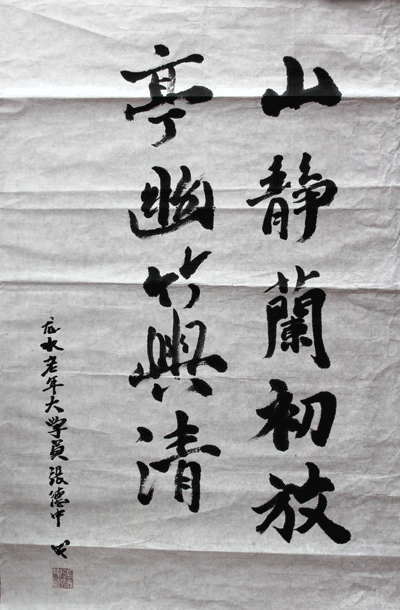 山静蘭初放
亭幽竹興清
龙水老年大学員張德中书